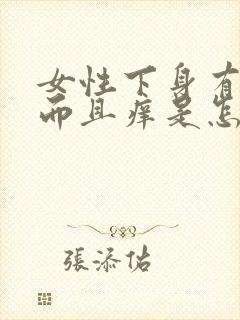 女性下身有
而且痒是怎
張添佑